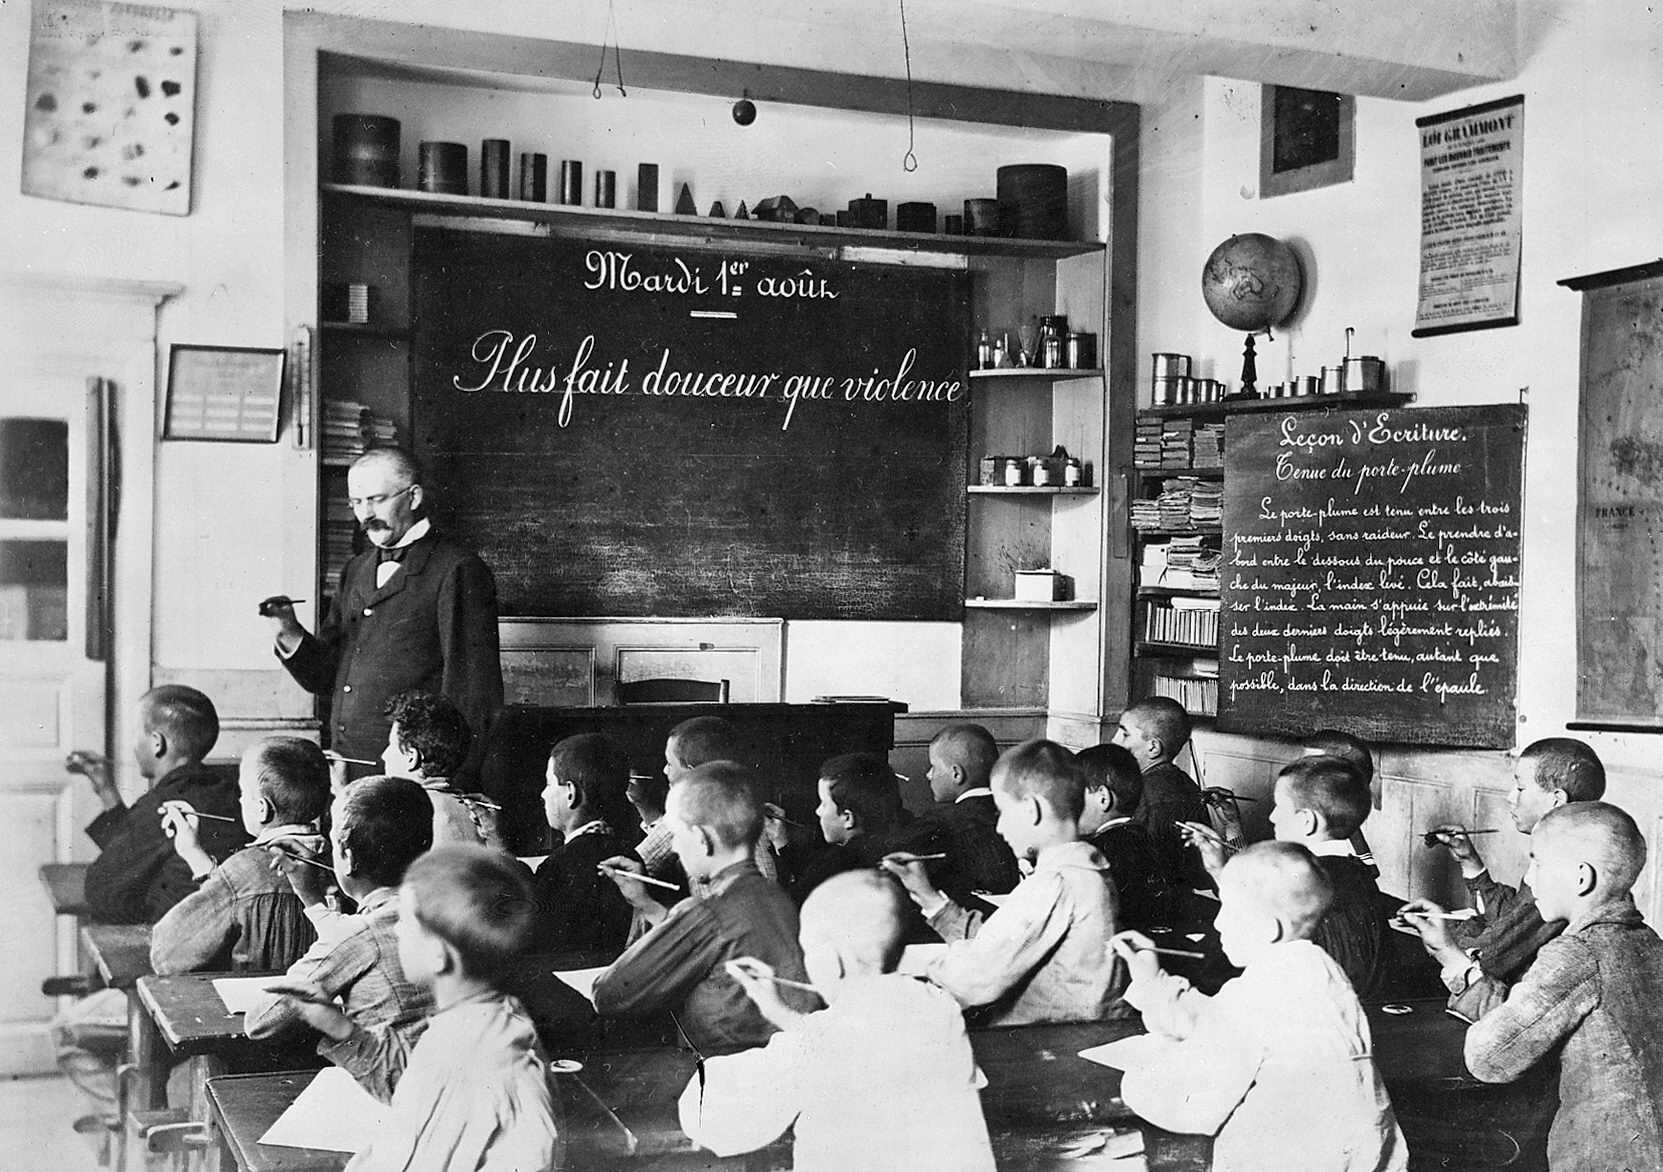 Mardi 1er août
Plus fait douceur que violence
LOI GRAMMONT
Leçon d'Ecriture.
Tenue du porte-plume
Le porte-plume est tenu entre les trois
premiers doigts, sans raideur. Le prendre d'a-
bord entre le dessous du pouce et le côté gau-
che du majeur, l'index levé. Cela fait, abais-
ser l'index. La main s'appuie sur l'extrémité
des deux derniers doigts légèrement repliés.
Le porte-plume doit être tenu, autant que
possible, dans la direction de l'épaule.
FRANCE